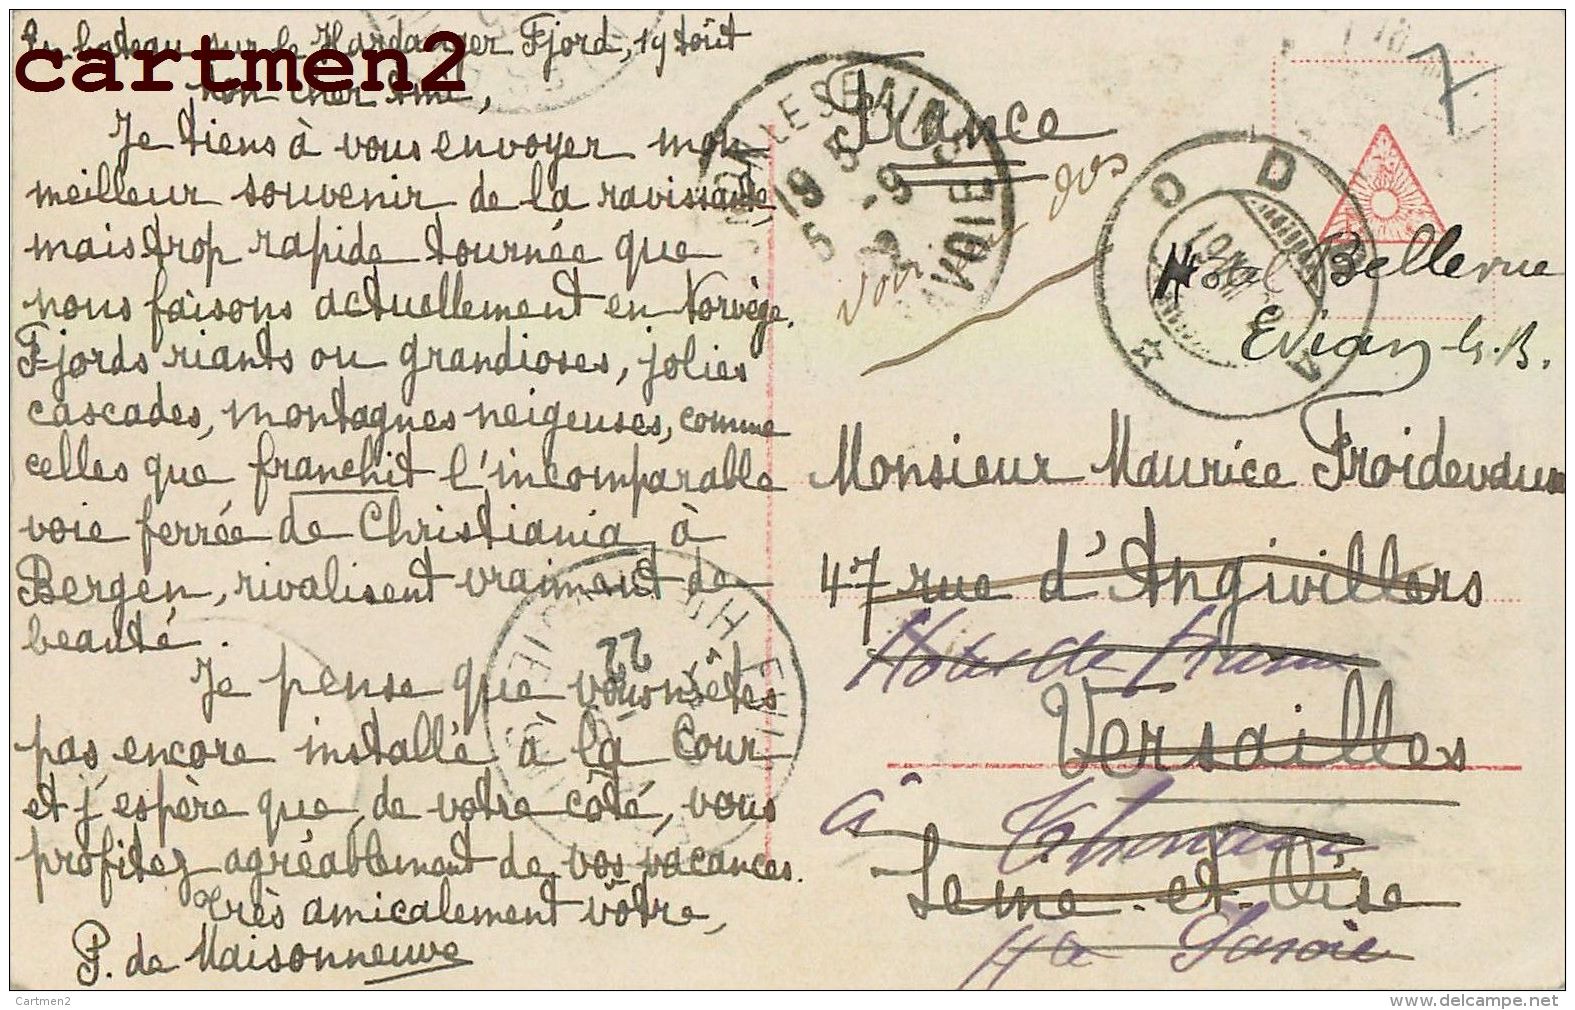 En bateau sur le Hardanger Fjord, 19 Août
cartmen2
Mon cher Ami,
Je tiens à vous envoyer mon
meilleur souvenir de la ravissante,
mais trop rapide tournée que
nous faisons actuellement en Norvège.
Fjords riants ou grandioses, jolies
cascades, montagnes neigeuses, comme
celles que franchit l'incomparable
voie ferrée de Christiania à
Bergen, rivalisent vraiment de
beauté.
Je pense que vous n'êtes
pas encore installé à la Cour
et j'espère que, de votre côté, vous
profitez agréablement de vos vacances.
Très amicalement vôtre,
P. de Maisonneuve
France
7
LES BAINS
19 5
5 -9
SAVOIE
ODDA
Hôtel Bellevue
Evian-les-B.
Monsieur Maurice Froidevaux
47 rue d'Angivillers
Hôtel de France
Versailles
à Thonon
Seine-et-Oise
Hte Savoie
22
Cartmen2
www.delcampe.net